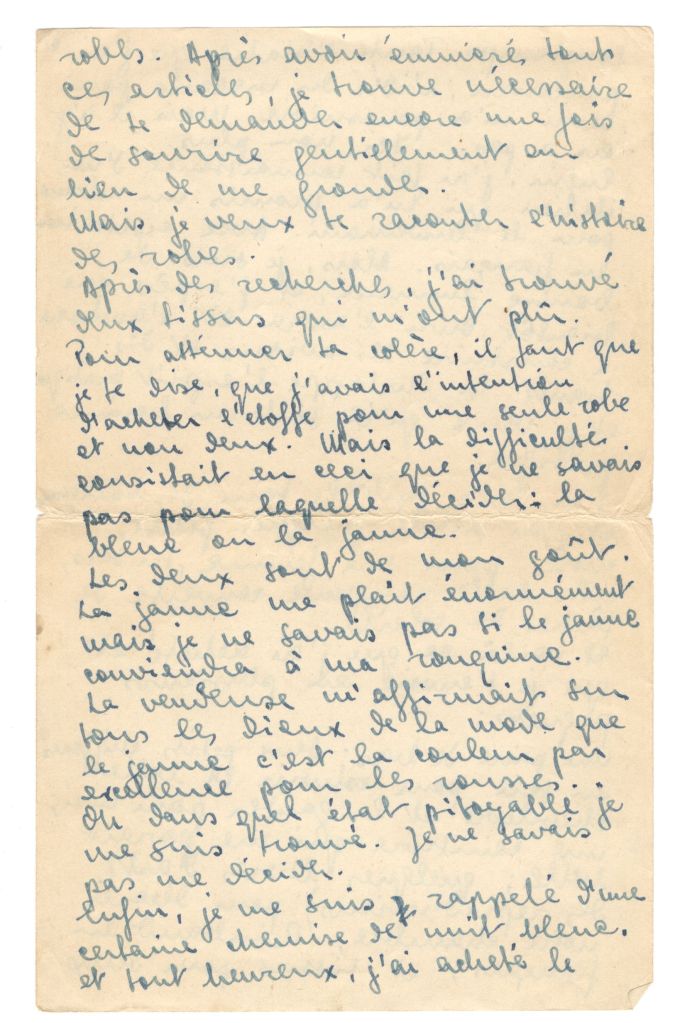 robes. Après avoir énuméré tous
ces articles, je trouve nécessaire
de te demander encore une fois
de sourire gentiellement en
lieu de me gronder.
Mais je veux te raconter l'histoire
des robes.
Après des recherches, j'ai trouvé
deux tissus qui m'ont plû.
Pour atténuer ta colère, il faut que
je te dise, que j'avais l'intention
d'acheter l'étoffe pour une seule robe
et non deux. Mais la difficulté
consistait en ceci que je ne savais
pas pour laquelle décider: la
bleue ou la jaune.
Les deux sont de mon goût.
La jaune me plaît énormément
mais je ne savais pas si le jaune
conviendra à ma rouquine.
La vendeuse m'affirmait sur
tous les dieux de la mode que
le jaune c'est la couleur par
excellence pour les rousses.
Oh dans quel état pitoyable je
me suis trouvé. Je ne savais
pas me décider.
Enfin, je me suis rappelé d'une
certaine chemise de nuit bleue.
et tout heureux, j'ai acheté le